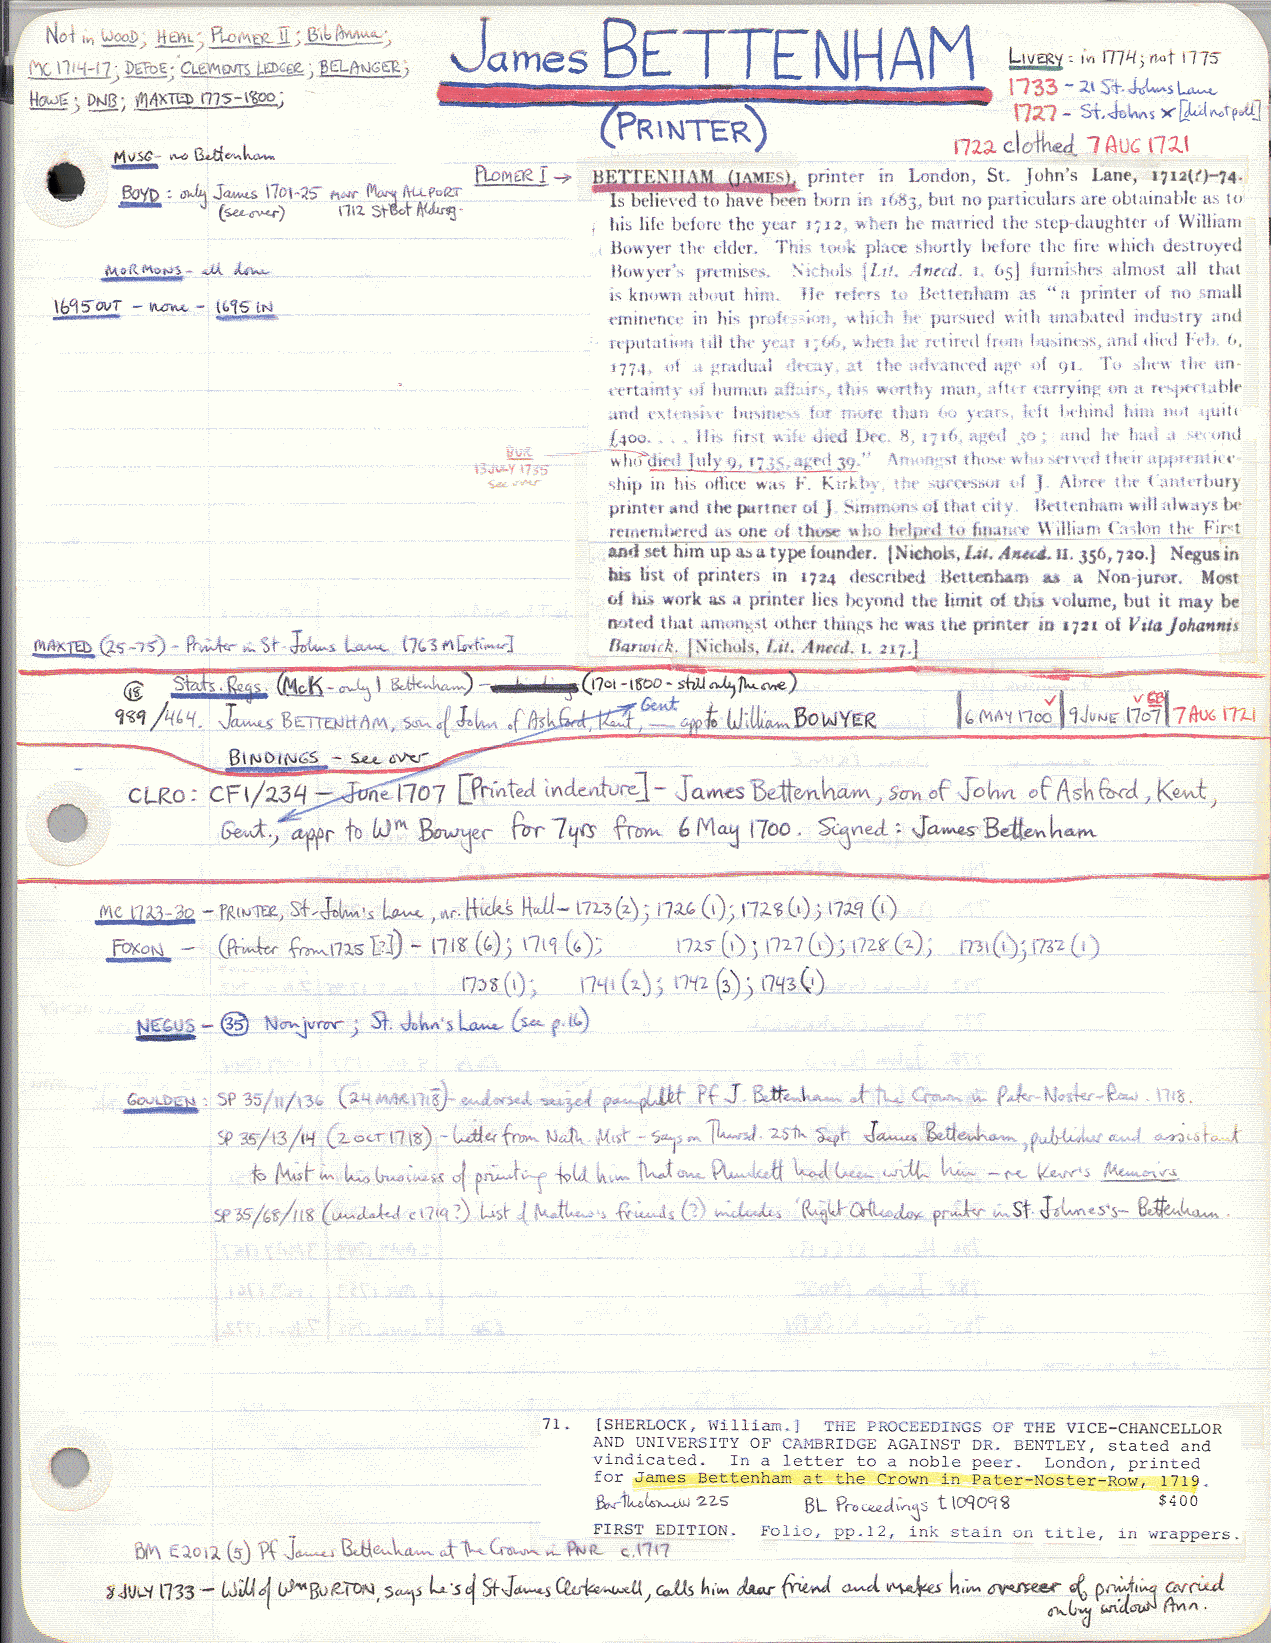 Not in WOOD; HEAL; PLOMER II; Bib Annua;
MC 1714-17; DEFOE; CLEMENTS LEDGER; BELANGER;
HOWE; DNB; MAXTED 1775-1800;
James BETTENHAM
(PRINTER)
LIVERY: in 1774; not 1775
1733 - 21 St. Johns Lane
1727 - St. Johns x [did not poll]
1722 clothed 7 AUG 1721
MUSG - no Bettenham
BOYD: only James 1701-25 marr Mary ALLPORT
(see over) 1712 St Bot Aldersg.
MORMONS - all done
1695 OUT - none - 1695 IN
PLOMER I →
BETTENHAM (JAMES), printer in London, St. John's Lane, 1712(?)-74.
Is believed to have been born in 1683, but no particulars are obtainable as to
his life before the year 1712, when he married the step-daughter of William
Bowyer the elder. This took place shortly before the fire which destroyed
Bowyer's premises. Nichols [Lit. Anecd. I. 65] furnishes almost all that
is known about him. He refers to Bettenham as "a printer of no small
eminence in his profession, which he pursued with unabated industry and
reputation till the year 1766, when he retired from business, and died Feb. 6,
1774, of a gradual decay, at the advanced age of 91. To shew the un-
certainty of human affairs, this worthy man, after carrying on a respectable
and extensive business for more than 60 years, left behind him not quite
£400. . . . His first wife died Dec. 8, 1716, aged 30; and he had a second
who died July 9, 1735, aged 39." Amongst those who served their apprentice-
ship in his office was F. Kirkby, the successor of J. Abree the Canterbury
printer and the partner of J. Simmons of that city. Bettenham will always be
remembered as one of those who helped to finance William Caslon the First
and set him up as a type founder. [Nichols, Lit. Anecd. II. 356, 720.] Negus in
his list of printers in 1724 described Bettenham as a Non-juror. Most
of his work as a printer lies beyond the limit of this volume, but it may be
noted that amongst other things he was the printer in 1721 of Vita Johannis
Barwick. [Nichols, Lit. Anecd. I. 217.]
BUR
13 JULY 1735
see over
MAXTED (25-75) - Printer in St. Johns Lane 1763 M[ortimer]
18 Stats. Regs. (McK - only 1 Bettenham) - (1701-1800 - still only the one)
Gent
989/464. James BETTENHAM, son of John of Ashford, Kent, - app to William BOWYER | 6 MAY 1700 | 9 JUNE 1707 | 7 AUG 1721
BINDINGS - see over
CLRO: CF1/234 - June 1707 [Printed indenture] - James Bettenham, son of John of Ashford, Kent,
Gent., appr to Wm Bowyer for 7 yrs from 6 May 1700. Signed: James Bettenham
MC 1723-30 - PRINTER, St. John's Lane, nr. Hick's Hall - 1723 (2); 1726 (1); 1728 (1); 1729 (1)
FOXON - (Printer from 1725 [?]) - 1718 (6); 1719 (6); 1725 (1); 1727 (1); 1728 (2); 1731 (1); 1732 (1)
1738 (1); 1741 (2); 1742 (3); 1743 (1)
NEGUS - 35 Nonjuror; St. John's Lane (see p.16)
GOULDEN: SP 35/11/136 (24 MAR 1718) - endorsed seized pamphlet Pf J. Bettenham at the Crown in Pater-Noster-Row. 1718.
SP 35/13/14 (2 OCT 1718) - Letter from Nath. Mist - says on Thursd. 25th Sept James Bettenham, publisher and assistant
to Mist in his business of printing told him that one Plunkett had been with him - re Kerr's Memoirs
SP 35/68/118 (undated c1719?) List of Mathews's friends (?) includes 'Right Orthodox printer in St. Johnes's - Bettenham.
71. [SHERLOCK, William.] THE PROCEEDINGS OF THE VICE-CHANCELLOR
AND UNIVERSITY OF CAMBRIDGE AGAINST DR. BENTLEY, stated and
vindicated. In a letter to a noble peer. London, printed
for James Bettenham at the Crown in Pater-Noster-Row, 1719.
Bartholomew 225 BL Proceedings t109098 $400
FIRST EDITION. Folio, pp.12, ink stain on title, in wrappers.
BM E2012 (5) Pf James Bettenham at the Crown in PNR c.1717
8 JULY 1733 - Will of Wm BURTON, says he's of St James Clerkenwell, calls him dear friend and makes him overseer of printing carried
on by widow Ann.